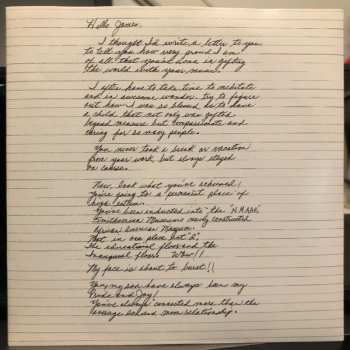 Hello James,
I thought I'd write a letter to you
to tell you how very proud I am
of all that you've done in gifting
the world with your music.
I often have to take time to meditate
and in awesome wonder try to figure
out how I was so blessed to have
a child that not only was gifted
beyond measure but compassionate and
caring for so many people.
You never took a break or vacation
from your work but always stayed
on course.
Now, look what you've achieved!
You're going to a permanent place of
You've been inducted into the "N.M.AAHC"
Smithsonian Museums newly constructed
African American Museum.
Not in one place but "2",
The educational floor and the
Inaugural floor. Wow!!
My face is about to burst!!
You my son have always been my
Pride and Joy!
You've always connected more than the
average son and mom relationship.